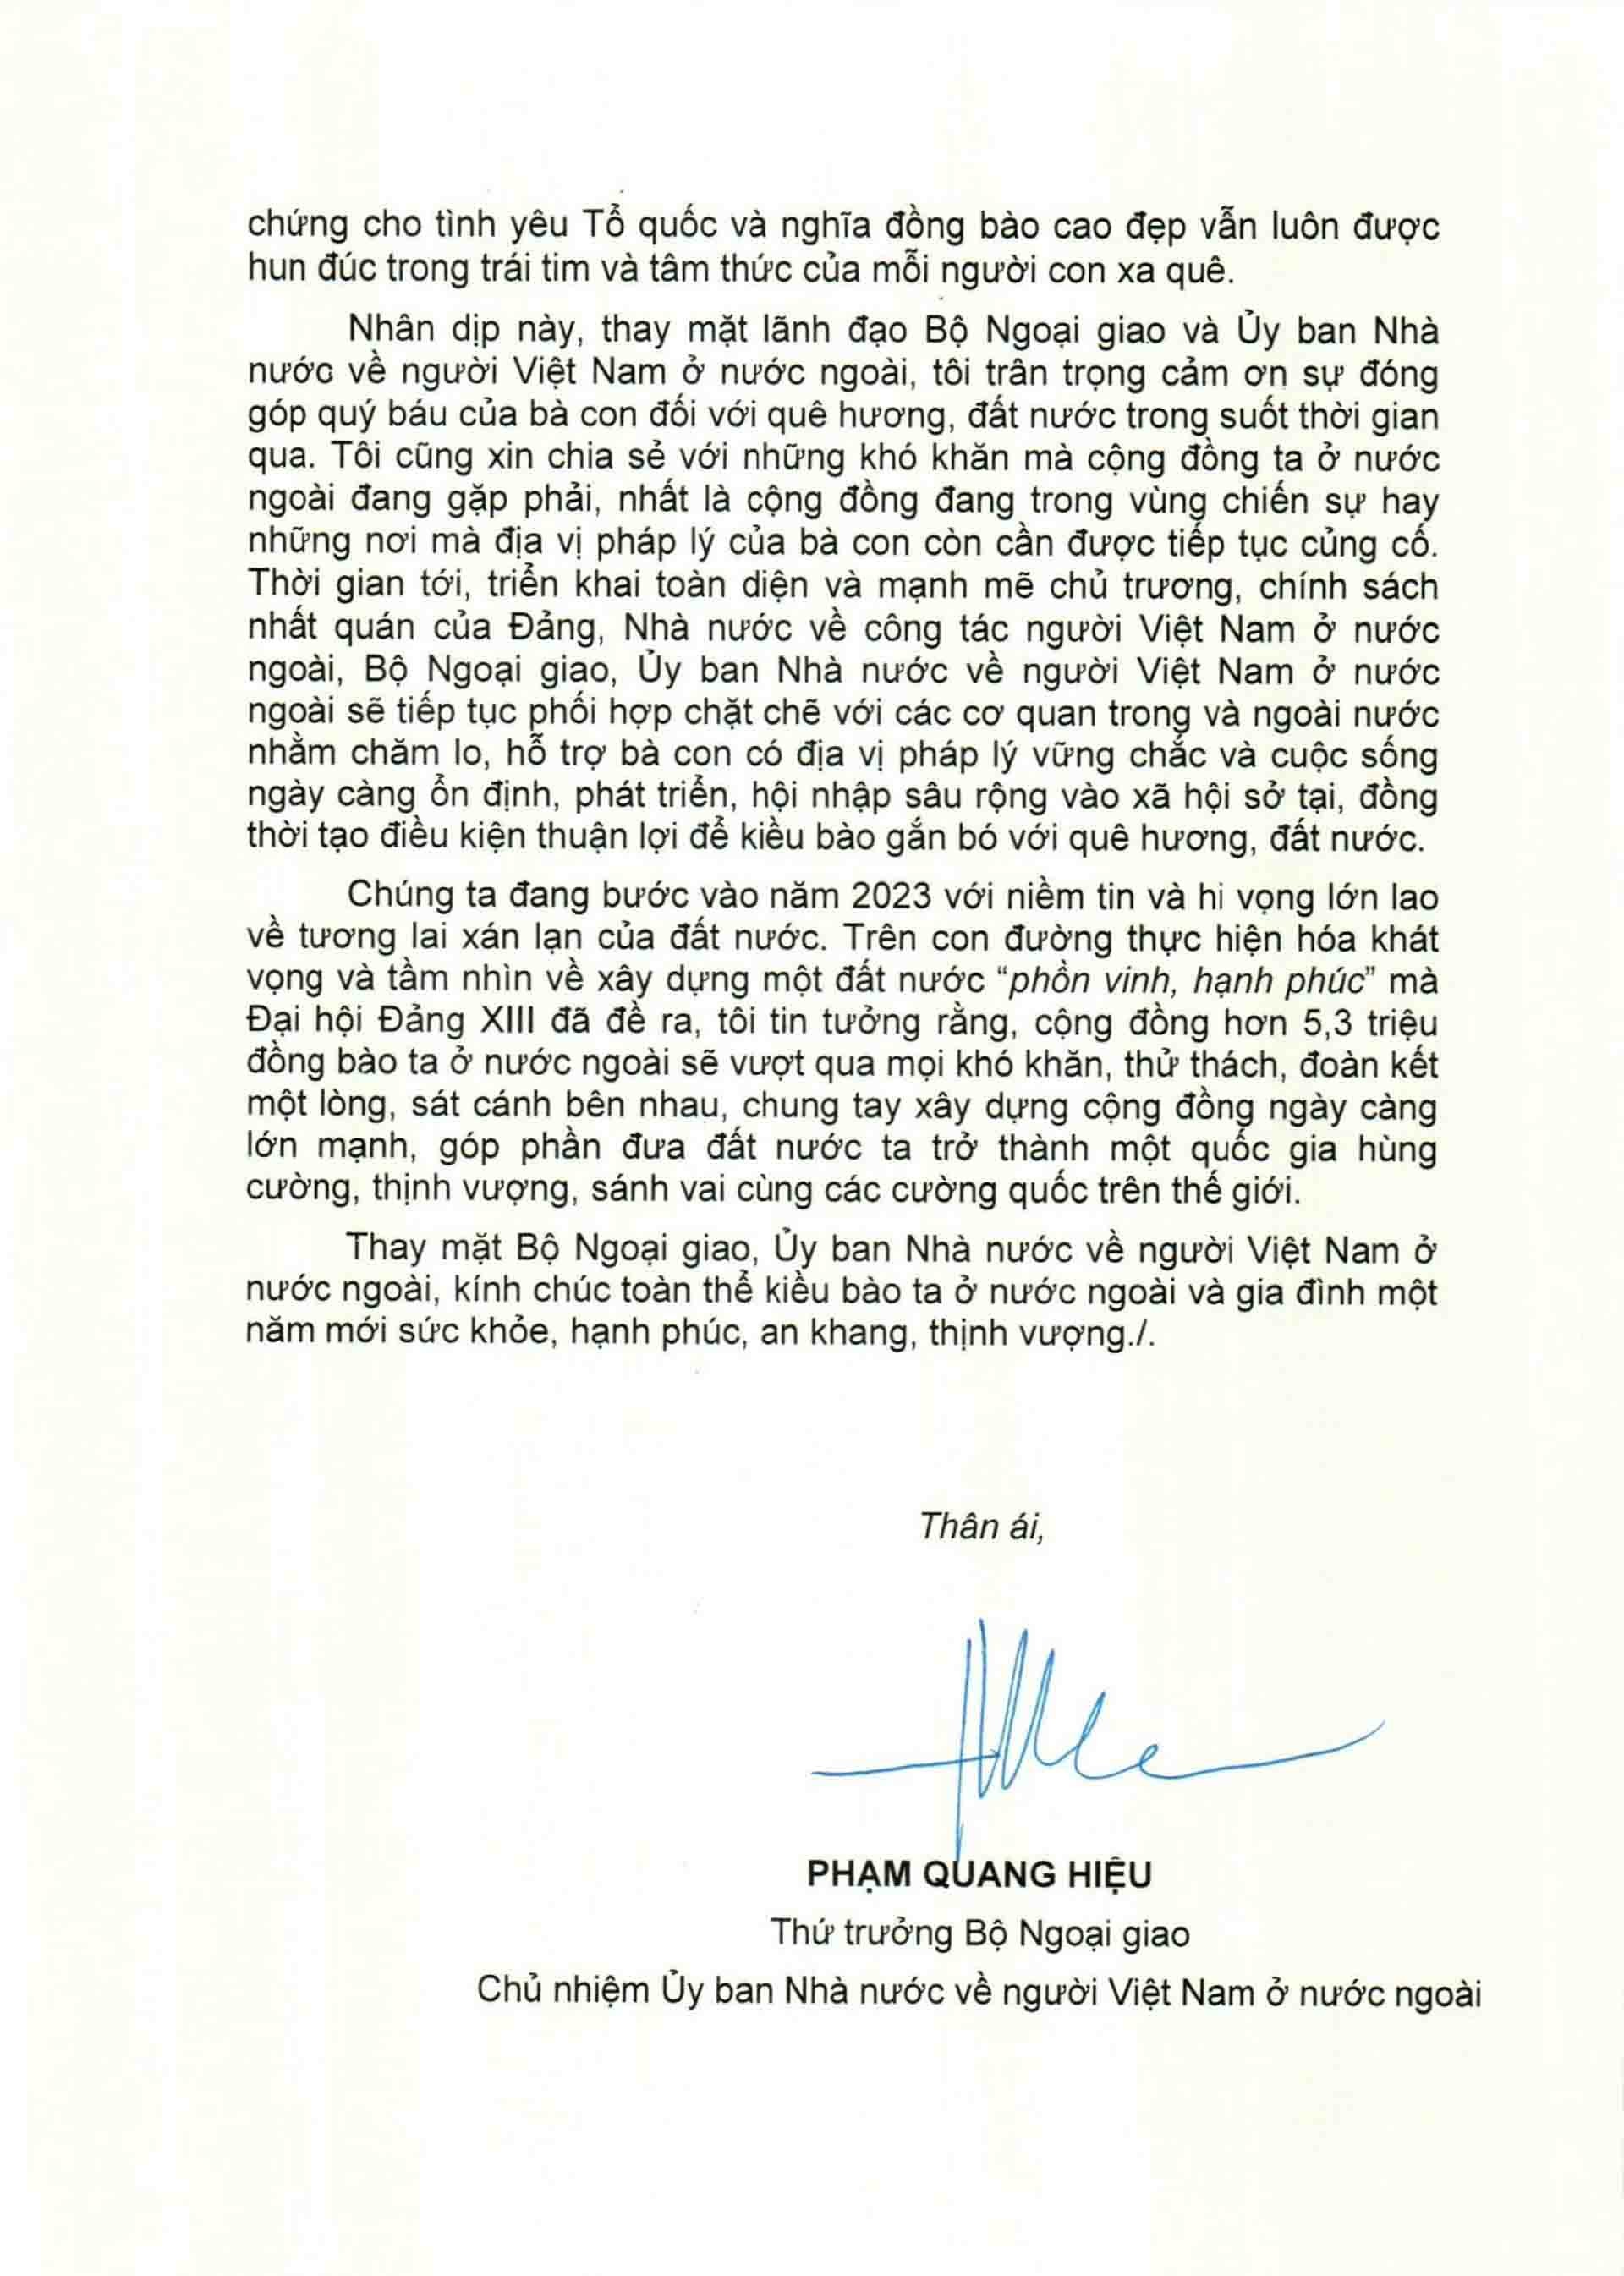 chứng cho tình yêu Tổ quốc và nghĩa đồng bào cao đẹp vẫn luôn được
hun đúc trong trái tim và tâm thức của mỗi người con xa quê.
Nhân dịp này, thay mặt lãnh đạo Bộ Ngoại giao và Ủy ban Nhà
nước về người Việt Nam ở nước ngoài, tôi trân trọng cảm ơn sự đóng
góp quý báu của bà con đối với quê hương, đất nước trong suốt thời gian
qua. Tôi cũng xin chia sẻ với những khó khăn mà cộng đồng ta ở nước
ngoài đang gặp phải, nhất là cộng đồng đang trong vùng chiến sự hay
những nơi mà địa vị pháp lý của bà con còn cần được tiếp tục củng cố.
Thời gian tới, triển khai toàn diện và mạnh mẽ chủ trương, chính sách
nhất quán của Đảng, Nhà nước về công tác người Việt Nam ở nước
ngoài, Bộ Ngoại giao, Ủy ban Nhà nước về người Việt Nam ở nước
ngoài sẽ tiếp tục phối hợp chặt chẽ với các cơ quan trong và ngoài nước
nhằm chăm lo, hỗ trợ bà con có địa vị pháp lý vững chắc và cuộc sống
ngày càng ổn định, phát triển, hội nhập sâu rộng vào xã hội sở tại, đồng
thời tạo điều kiện thuận lợi để kiều bào gắn bó với quê hương, đất nước.
Chúng ta đang bước vào năm 2023 với niềm tin và hi vọng lớn lao
về tương lai xán lạn của đất nước. Trên con đường thực hiện hóa khát
vọng và tầm nhìn về xây dựng một đất nước “phồn vinh, hạnh phúc” mà
Đại hội Đảng XIII đã đề ra, tôi tin tưởng rằng, cộng đồng hơn 5,3 triệu
đồng bào ta ở nước ngoài sẽ vượt qua mọi khó khăn, thử thách, đoàn kết
một lòng, sát cánh bên nhau, chung tay xây dựng cộng đồng ngày càng
lớn mạnh, góp phần đưa đất nước ta trở thành một quốc gia hùng
cường, thịnh vượng, sánh vai cùng các cường quốc trên thế giới.
Thay mặt Bộ Ngoại giao, Ủy ban Nhà nước về người Việt Nam ở
nước ngoài, kính chúc toàn thể kiều bào ta ở nước ngoài và gia đình một
năm mới sức khỏe, hạnh phúc, an khang, thịnh vượng./.
Thân ái,
PHẠM QUANG HIỆU
Thứ trưởng Bộ Ngoại giao
Chủ nhiệm Ủy ban Nhà nước về người Việt Nam ở nước ngoài